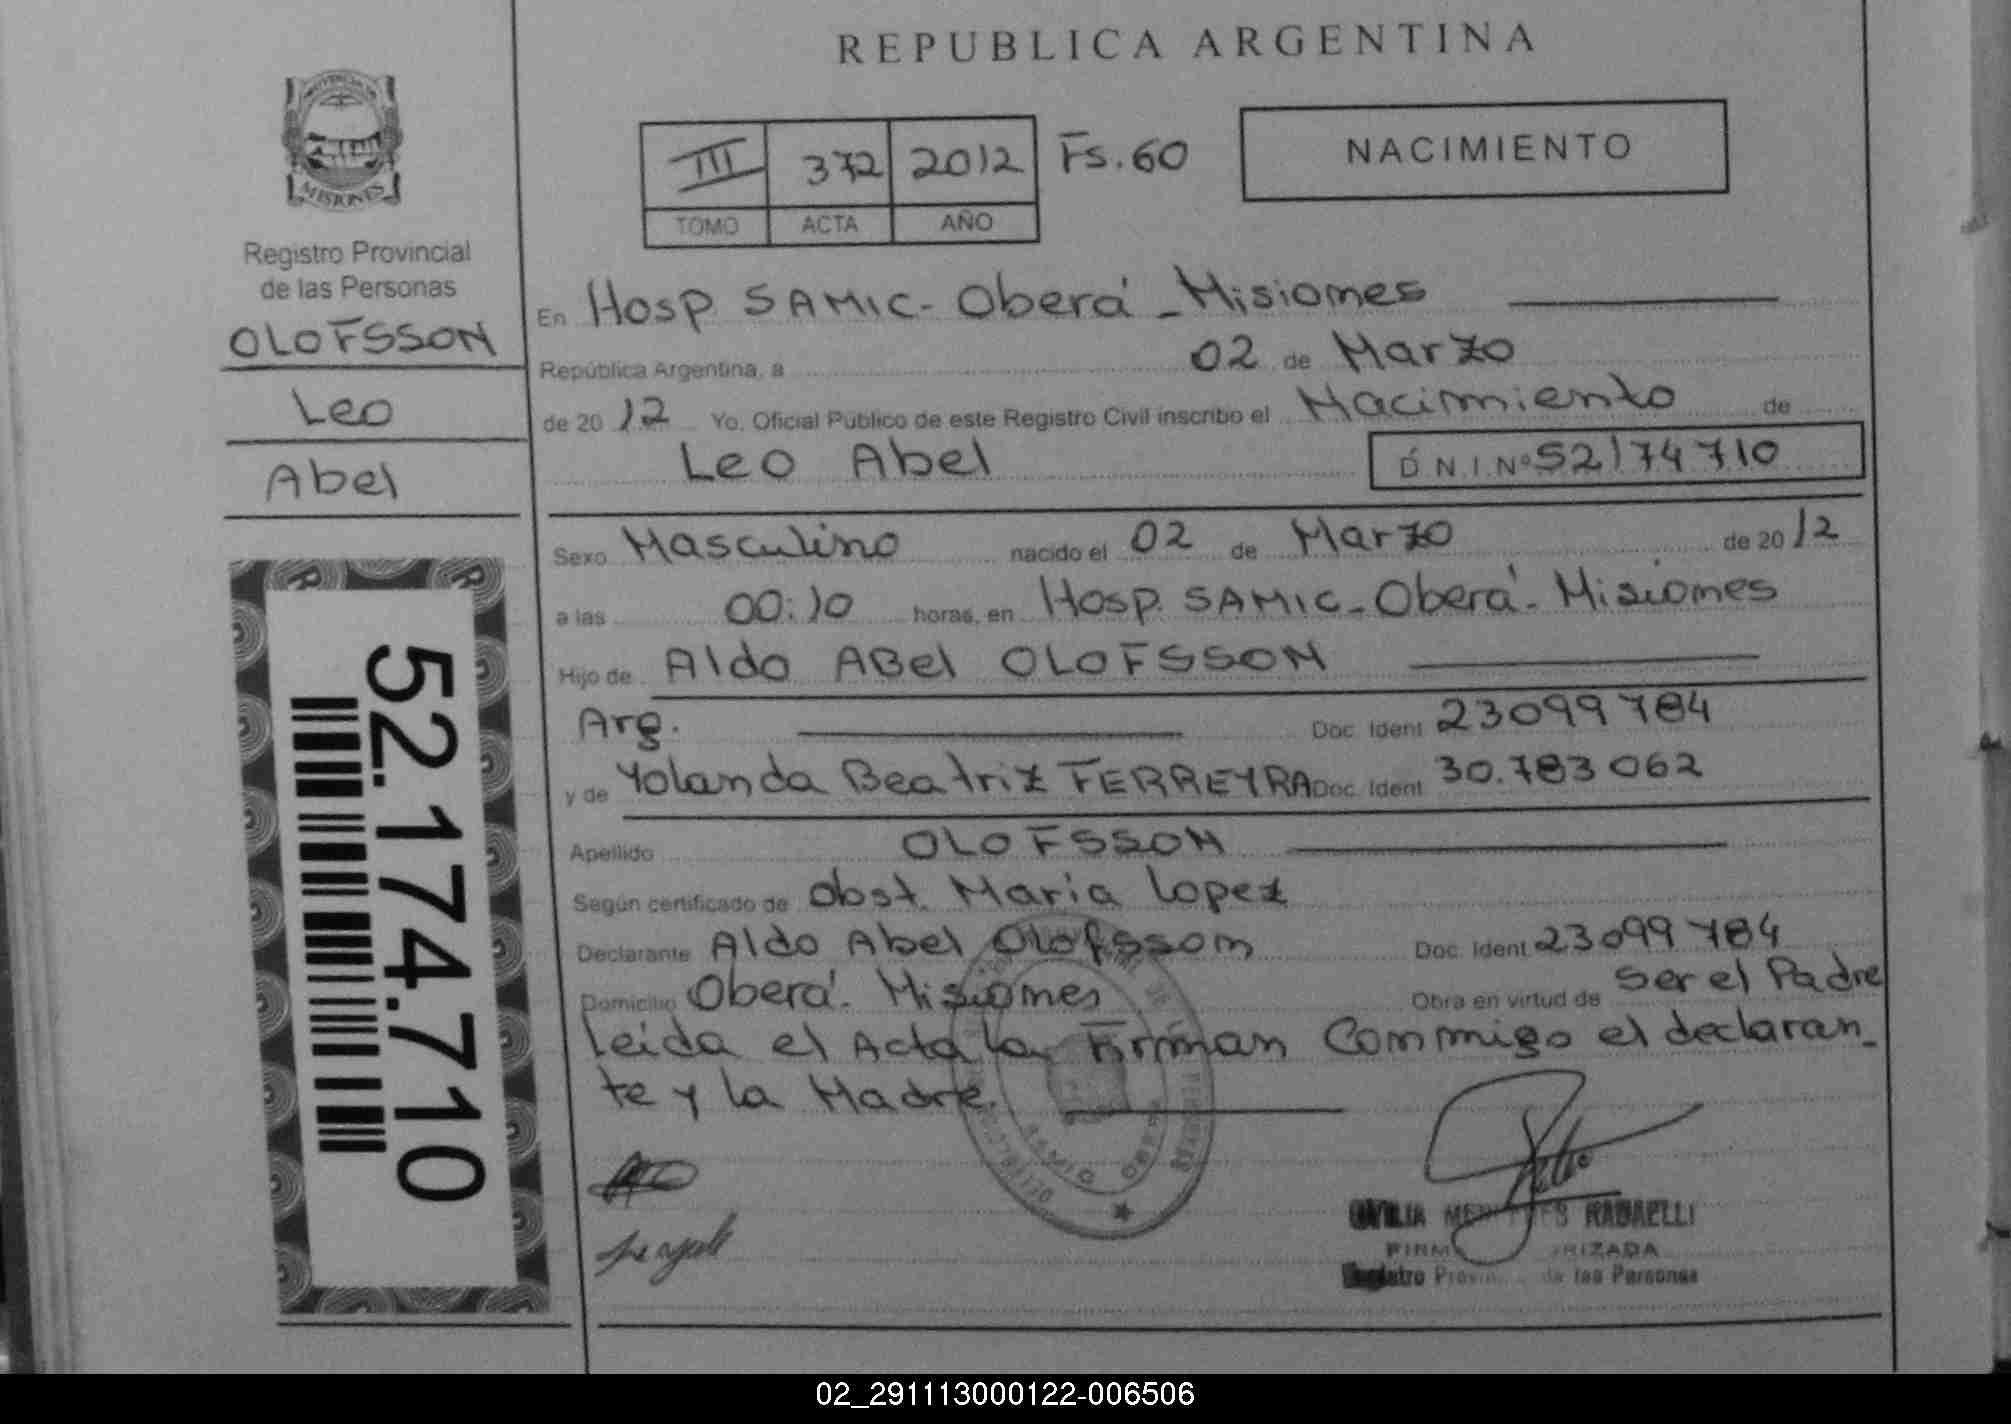 REPUBLICA ARGENTINA
PROVINCIA DE
MISIONES
Registro Provincial
de las Personas
OLOFSSON
Leo
Abel
52.174.710
III 372 2012 Fs. 60
TOMO ACTA AÑO
NACIMIENTO
En Hosp SAMIC - Oberá - Misiones
República Argentina, a 02 de Marzo
de 2012 Yo, Oficial Público de este Registro Civil inscribo el Nacimiento de
Leo Abel D.N.I.Nº 52174710
Sexo Masculino nacido el 02 de Marzo de 2012
a las 00:10 horas, en Hosp. SAMIC - Oberá - Misiones
Hijo de Aldo ABel OLOFSSON
Arg. Doc. Ident 23099784
y de Yolanda Beatriz FERREYRA Doc. Ident 30.783062
Apellido OLOFSSON
Según certificado de Obst. Maria Lopez
Declarante Aldo Abel Olofsson Doc. Ident 23099784
Domicilio Oberá - Misiones Obra en virtud de ser el Padre
Leida el Acta la Firman Conmigo el declaran-
te y la Madre.
RADAELLI
Registro Provin de las Personas
02_291113000122-006506